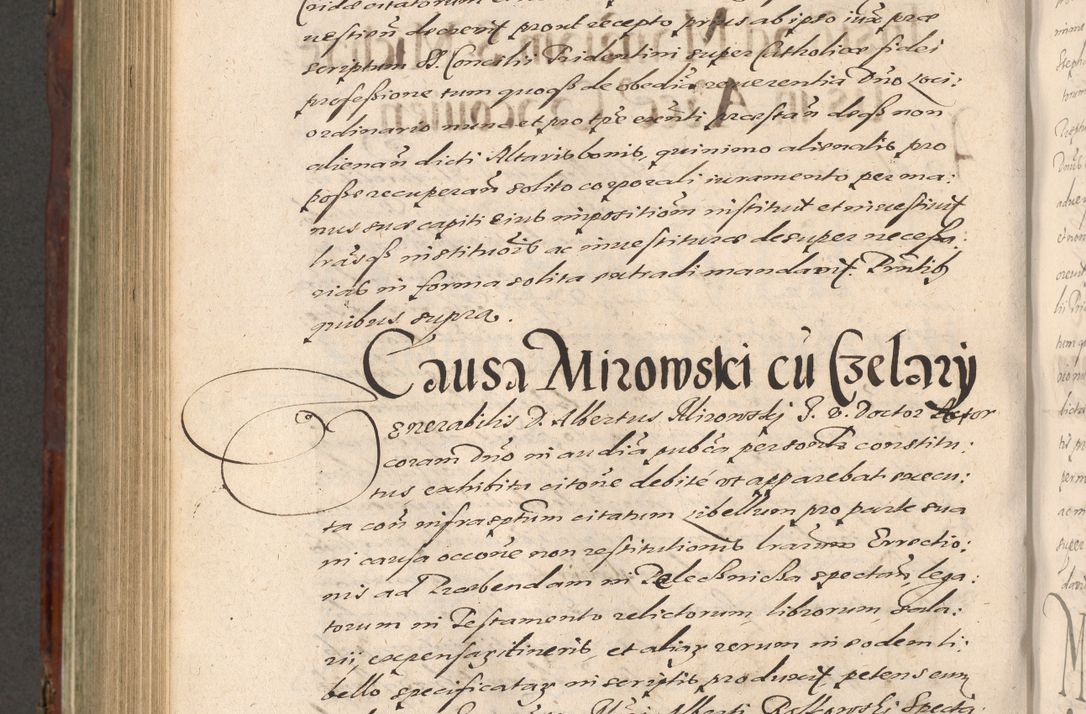 uestien decreuit prout recepto prius ab ipso iux præ
scriptum SS. Concilii Tridentini super Catholicæ fidei
professione tum quoqȝ de obedia reuerentia Dno loci:
ordinario nunc et pro tpe exnti præstan deqȝ non
alienan dicti Altaris bonis, quinimo alienatis pro
posse recuperan solito corporali iuramento per ma:
nus suæ capiti eius impositiom instituit et inuestiuit
lrasqȝ institutiois ac inuestituræ desuper necessa:
rias in forma solita extradi mandauit. Pntib
quibus supra.
Causa Mirowski cu Czelary
Venerabilis D. Albertus Mirowskj J. V. Doctor Actor
coram Dno in audia pubca personalr constitu:
tus exhibita citone debite vt apparebat execu:
ta con infrascptum citatum libellum pro parte sua
in causa occone non restitutionis lrarum Errectio:
nis ad Præbendam in Pelecznicza spectan lega:
torum in Testamento relictorum, librorum, sala:
rii, expensar itineris, et aliar rerum in eodem li:
bello specificatar in scriptis produxit petens eum
Alberti Rostowski